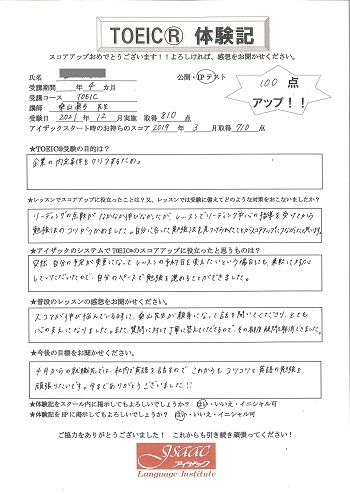 TOEIC® 体験記
スコアアップおめでとうございます！！よろしければ、感想をお聞かせください。
氏名
受講期間 年 4 カ月
受講コース TOEIC
講師
公開・IPテスト
100 点
アップ！！
受験日 2021 年 12 月実施 取得 810 点
アイザックスタート時のお持ちのスコア 2019 年 3 月取得 710 点
★TOEIC®受験の目的は？
企業の内定条件をクリアするため。
★レッスンでスコアアップに役立ったことは？又、レッスンでは受験に備えてどのような対策をおこないましたか？
リーディングの点数がなかなか伸びなかったが、レッスンでリーディング中心の指導を受けてから
勉強法のコツをつかめました。自分に合った勉強法を見つけられたことがスコアアップにつながったと思います。
★アイザックのシステムでTOEIC®のスコアアップに役立ったと思うものは？
突然、自分の予定が変更になってレッスンの予約日を変えたいという場合にも、柔軟に対応
していただいたので、自分のペースで勉強を進めることができました。
★普段のレッスンの感想をお聞かせください。
スコアが伸び悩んでいる時に、
先生が親身になって話を聞いてくださり、とても
心の支えになりました。また、質問に対して丁寧に答えてくださるので、その都度疑問を解消できました。
★今後の目標をお聞かせください。
4月からの就職先では、社内で英語を話すので、これからもコツコツと英語の勉強を
頑張りたいです。今までありがとうございました!!
★体験記をスクール内に掲示してもよろしいでしょうか？ はい・いいえ・イニシャル可
★体験記をHPに掲示してもよろしいでしょうか？ はい・いいえ・イニシャル可
ご協力をありがとうございました！ これからも引き続き頑張ってください！
Isaac
アイザック
Language Institute